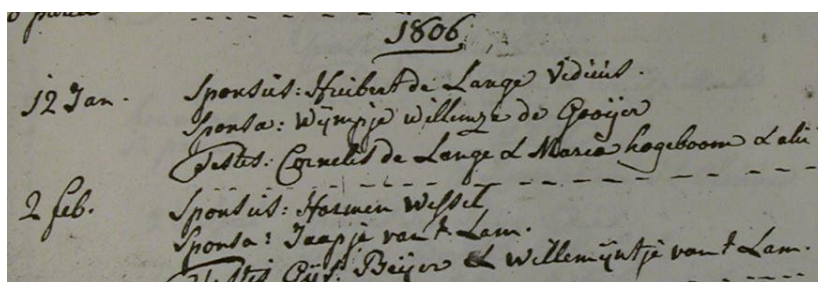 1806
12 Jan. Sponsus: Huibert de Lange Viduus.
Sponsa: Wijmpje Willemze de Gooijer
Testes: Cornelis de Lange & Maria hogeboom & alii
2 feb. Sponsus: Harmen Wessel
Sponsa: Jaapje van t Lam.
Testes Gijs: Beijer & Willemijntje van t Lam.